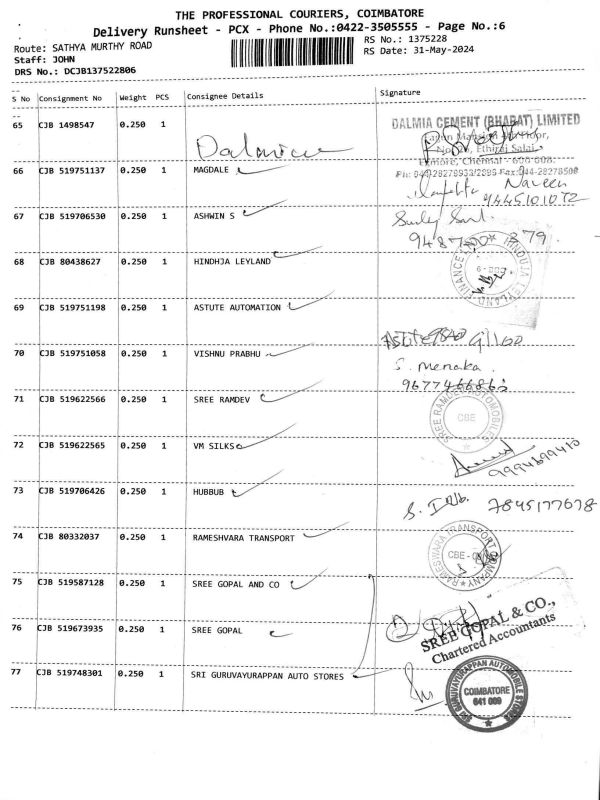 THE PROFESSIONAL COURIERS, COIMBATORE
Delivery Runsheet - PCX - Phone No.:0422-3505555 - Page No.:6
Route: SATHYA MURTHY ROAD
RS No.: 1375228
Staff: JOHN
RS Date: 31-May-2024
DRS No.: DCJB137522806
S No Consignment No Weight PCS Consignee Details Signature
65 CJB 1498547 0.250 1
DALMIA CEMENT (BHARAT) LIMITED
Egmore, Chennai - 600 008.
66 CJB 519751137 0.250 1 MAGDALE
Naveen
9445101072
67 CJB 519706530 0.250 1 ASHWIN S
68 CJB 80438627 0.250 1 HINDHJA LEYLAND
HINDUJA LEYLAND FINANCE
69 CJB 519751198 0.250 1 ASTUTE AUTOMATION
Astute
70 CJB 519751058 0.250 1 VISHNU PRABHU
S. Menaka
71 CJB 519622566 0.250 1 SREE RAMDEV
SREE RAMDEV AUTOMOBILES
CBE
72 CJB 519622565 0.250 1 VM SILKS
9994699410
73 CJB 519706426 0.250 1 HUBBUB
7845177678
74 CJB 80332037 0.250 1 RAMESHVARA TRANSPORT
RAMESWARA TRANSPORT COMPANY
75 CJB 519587128 0.250 1 SREE GOPAL AND CO
76 CJB 519673935 0.250 1 SREE GOPAL
SREE GOPAL & CO.,
Chartered Accountants
77 CJB 519748301 0.250 1 SRI GURUVAYURAPPAN AUTO STORES
SRI GURUVAYURAPPAN AUTOMOBILE STORES
COIMBATORE
641 009